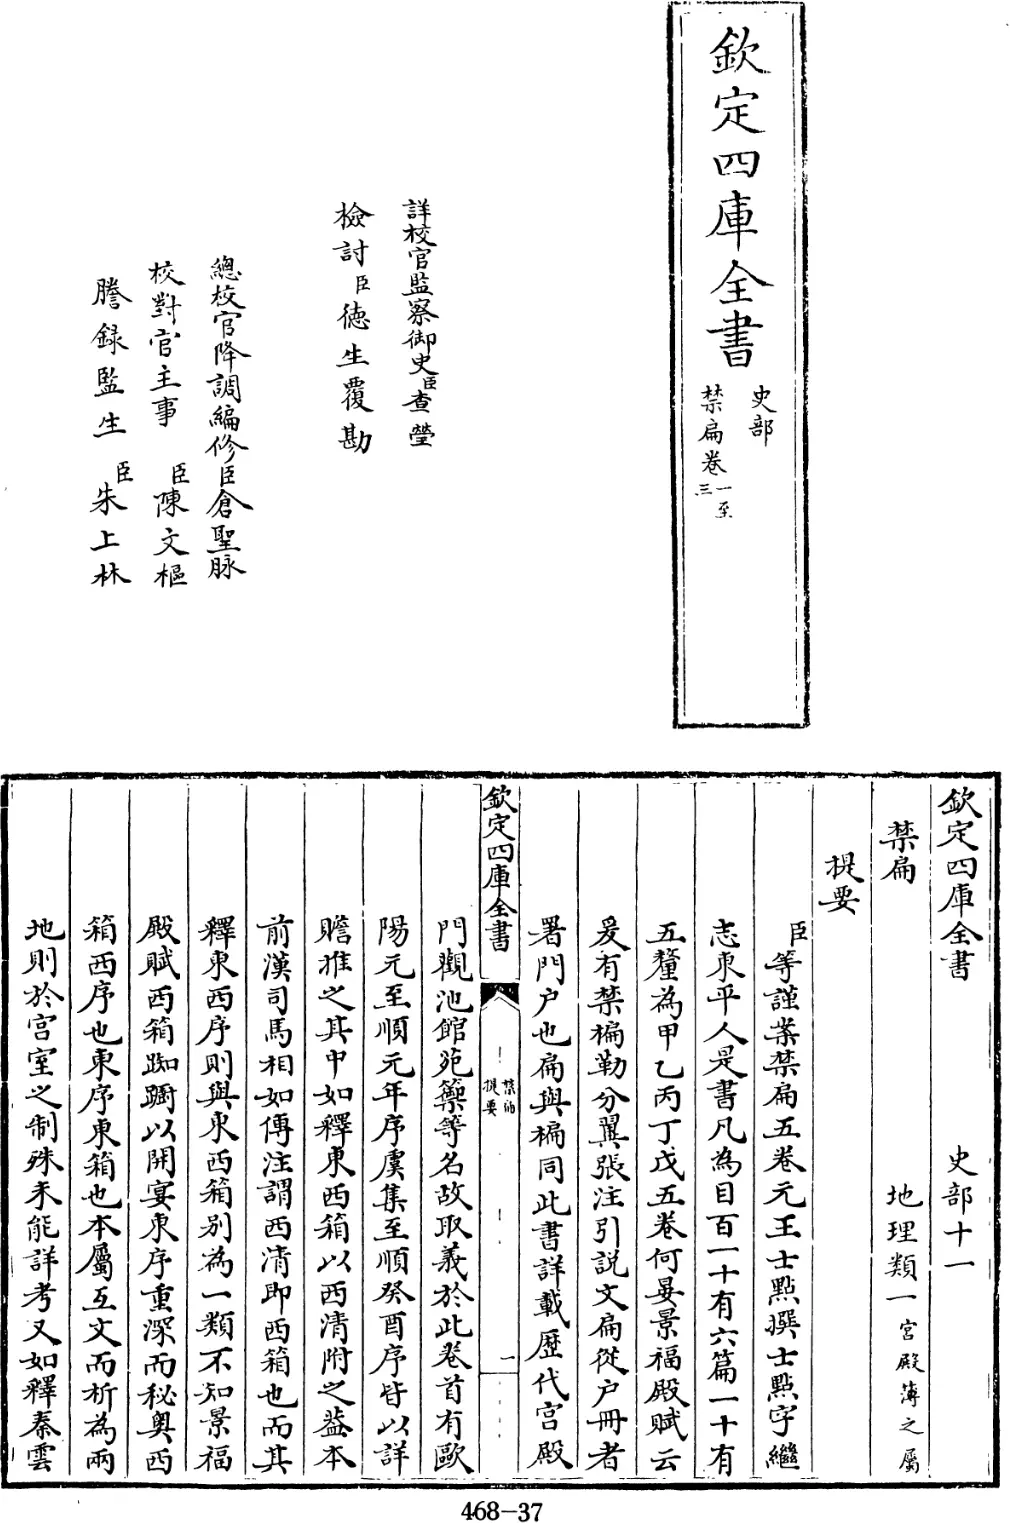 欽定四庫全書
史部
禁扁卷一至三
詳校官監察御史臣查瑩
檢討臣德生覆勘
總校官降調編修臣倉聖脉
校對官主事臣陳文樞
謄錄監生臣朱上林
欽定四庫全書 史部十一
禁扁 地理類一宫殿薄之屬
提要
臣等謹案禁扁五卷元王士㸃撰士㸃字繼
志東平人是書凡為目百一十有六篇一十有
五釐為甲乙丙丁戊五卷何晏景福殿賦云
爰有禁楄勒分翼張注引説文扁從户冊者
署門户也扁與楄同此書詳載歴代宫殿
欽定四庫全書
禁扁
提要
一
門觀池館苑籞等名故取義於此卷首有歐
陽元至順元年序虞集至順癸酉序皆以詳
贍推之其中如釋東西箱以西清附之葢本
前漢司馬相如傳注謂西清即西箱也而其
釋東西序則與東西箱别為一類不知景福
殿賦西箱踟蹰以開宴東序重深而秘奥西
箱西序也東序東箱也本屬互文而析為兩
地則於宫室之制殊未能詳考又如釋秦雲
468-37